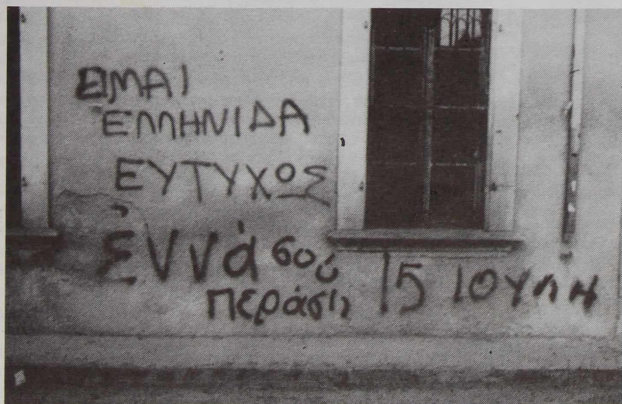 ΕΙΜΑΙ
ΕΛΛΗΝΙΔΑ
ΕΥΤΥΧΟΣ
ἐννά σου
περάσῃ 15 ΙΟΥΛΗ